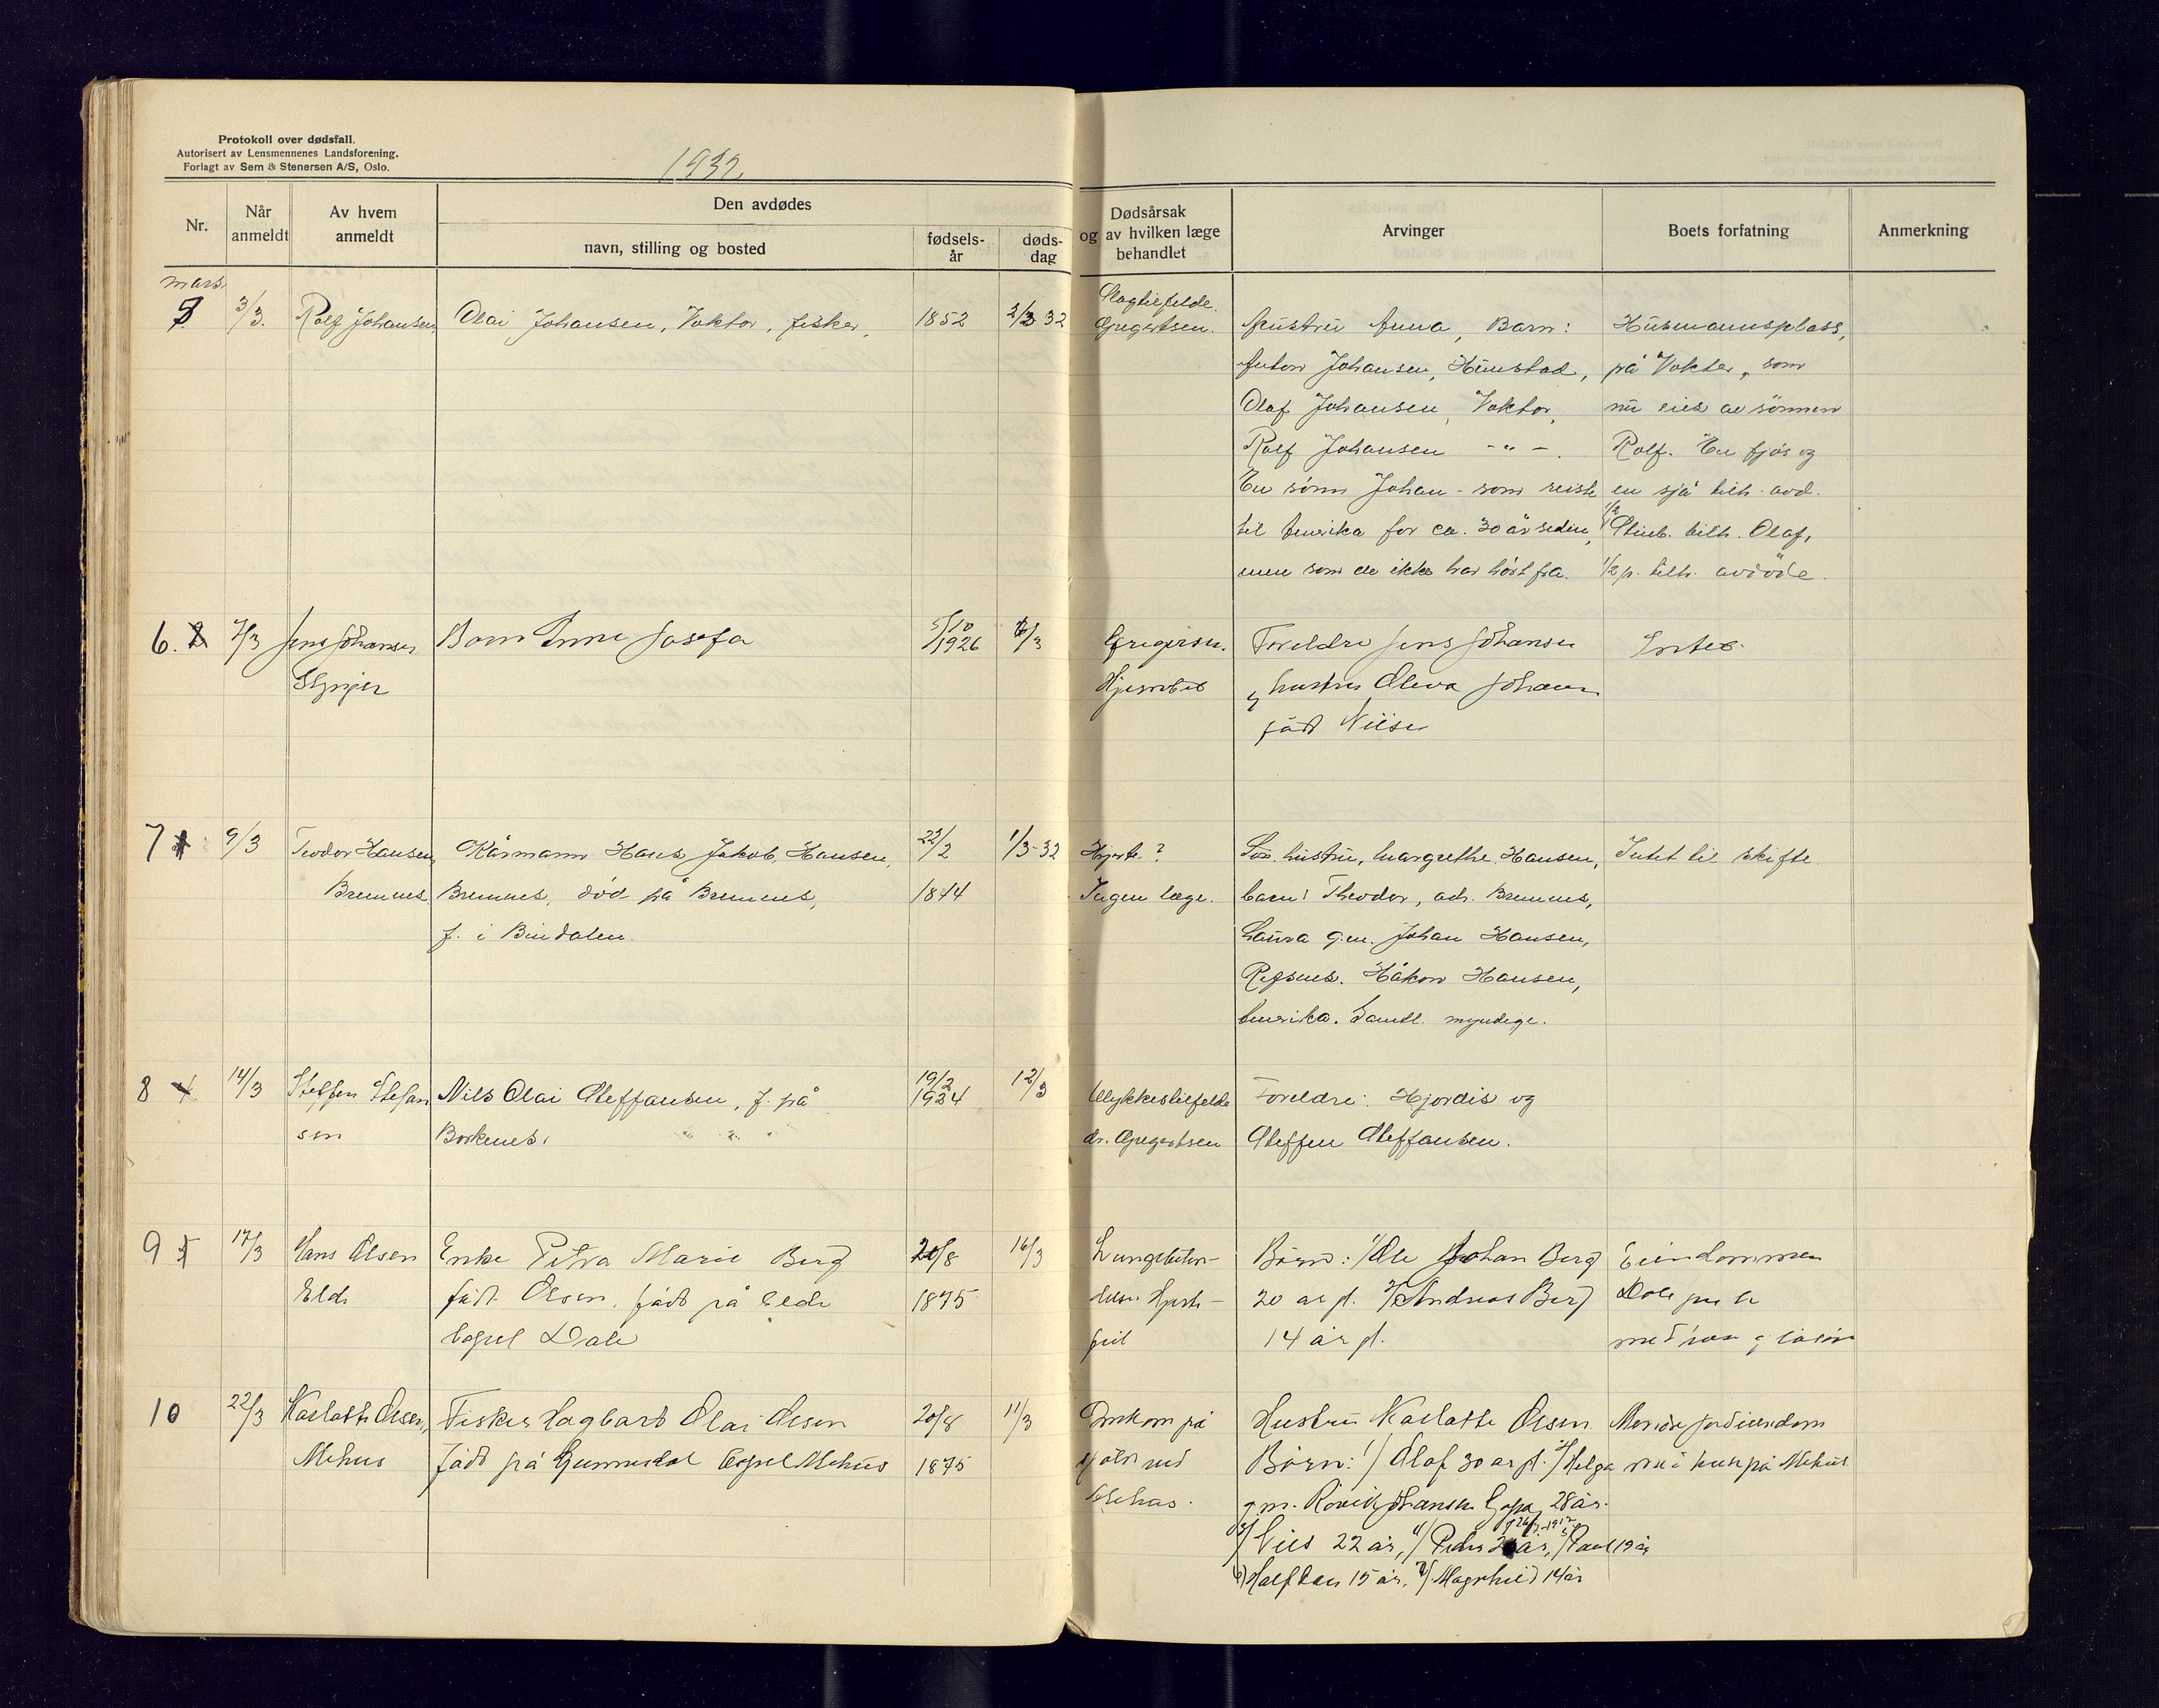 Protokoll over dødsfall.
Autorisert av Lensmennenes Landsforening.
Forlagt av Sem & Stenersen A/S, Oslo.
1932.
Nr.
Når anmeldt
Av hvem anmeldt
Den avdødes
navn, stilling og bosted
fødsels-år
døds-dag
Dødsårsak og av hvilken læge behandlet
Arvinger
Boets forfatning
Anmerkning
mars
3/3. Rolf Johansen Olai Johansen, Voktor, fisker, 1852 2/3 32
Slagtilfelde.
Gregertsen.
Hustru Anna, Barn:
Anton Johansen, Hunstad,
Olaf Johansen, Voktor,
Rolf Johansen -"-.
En sønn Johan - som reiste
til Amerika for ca. 30 år siden,
men som de ikke har hørt fra.
Husmannsplass,
på Vokter, som
nu eies av sönnen
Rolf. En fjøs og
en sjå tilh. avd.
1/2 Stueb. tilh. Olaf,
1/2 p. tilh. avdöde.
6. 7/3 Jens Johansen
Barn Anne Josefa
5/10
1926
Gregersen.
Foreldre Jens Johansen
hustru Oleva Johansen
född Nilsen
Intet.
7 9/3 Teodor Hansen,
Bremnes
Kårmann Hans Jakob Hansen,
Bremnes, död på Bremnes,
f. i Bindalen.
22/2
1844
1/3-32
Hjerte?
Ingen læge.
hustru, Margrethe Hansen,
barn: Theodor, adr. Bremnes,
Laura g.m. Johan Hansen,
Refsnes. Håkon Hansen,
Amerika. Samtl. myndige.
Intet til skifte
8 14/3 Steffen Stefan
sen
Nils Olai Steffansen, f. på
Borkenes.
19/2
1924
12/3
Ulykkestilfelde
dr. Gregertsen
Foreldre: Hjordis og
Steffen Steffansen.
9 17/3 Hans Olsen
Elde
Enke Petra Marie Berg
född Olsen, född på Elde
bopel Dale
20/8
1875
16/3
Lungebeten-
delse Hjerte-
feil
Børn: 1/ Ole Johan Berg
20 år gl. 2/ Andreas Berg
14 år gl.
Eiendommen
10 22/3 Karlotte Olsen,
Mehus
Fisker Hagbart Olai Olsen
född på Gunnesdal bopel Mehus
20/8
1875
11/3
Omkom på
Hustru Karlotte Olsen
Børn: 1/ Olaf 30 år gl. 2/ Helga
28 år.
3/ Nils 22 år, 4/ Peder år, 5/ Paul 19 år
6) Halfdan 15 år, 7/ Magnhild 14 år
hus på Mehus